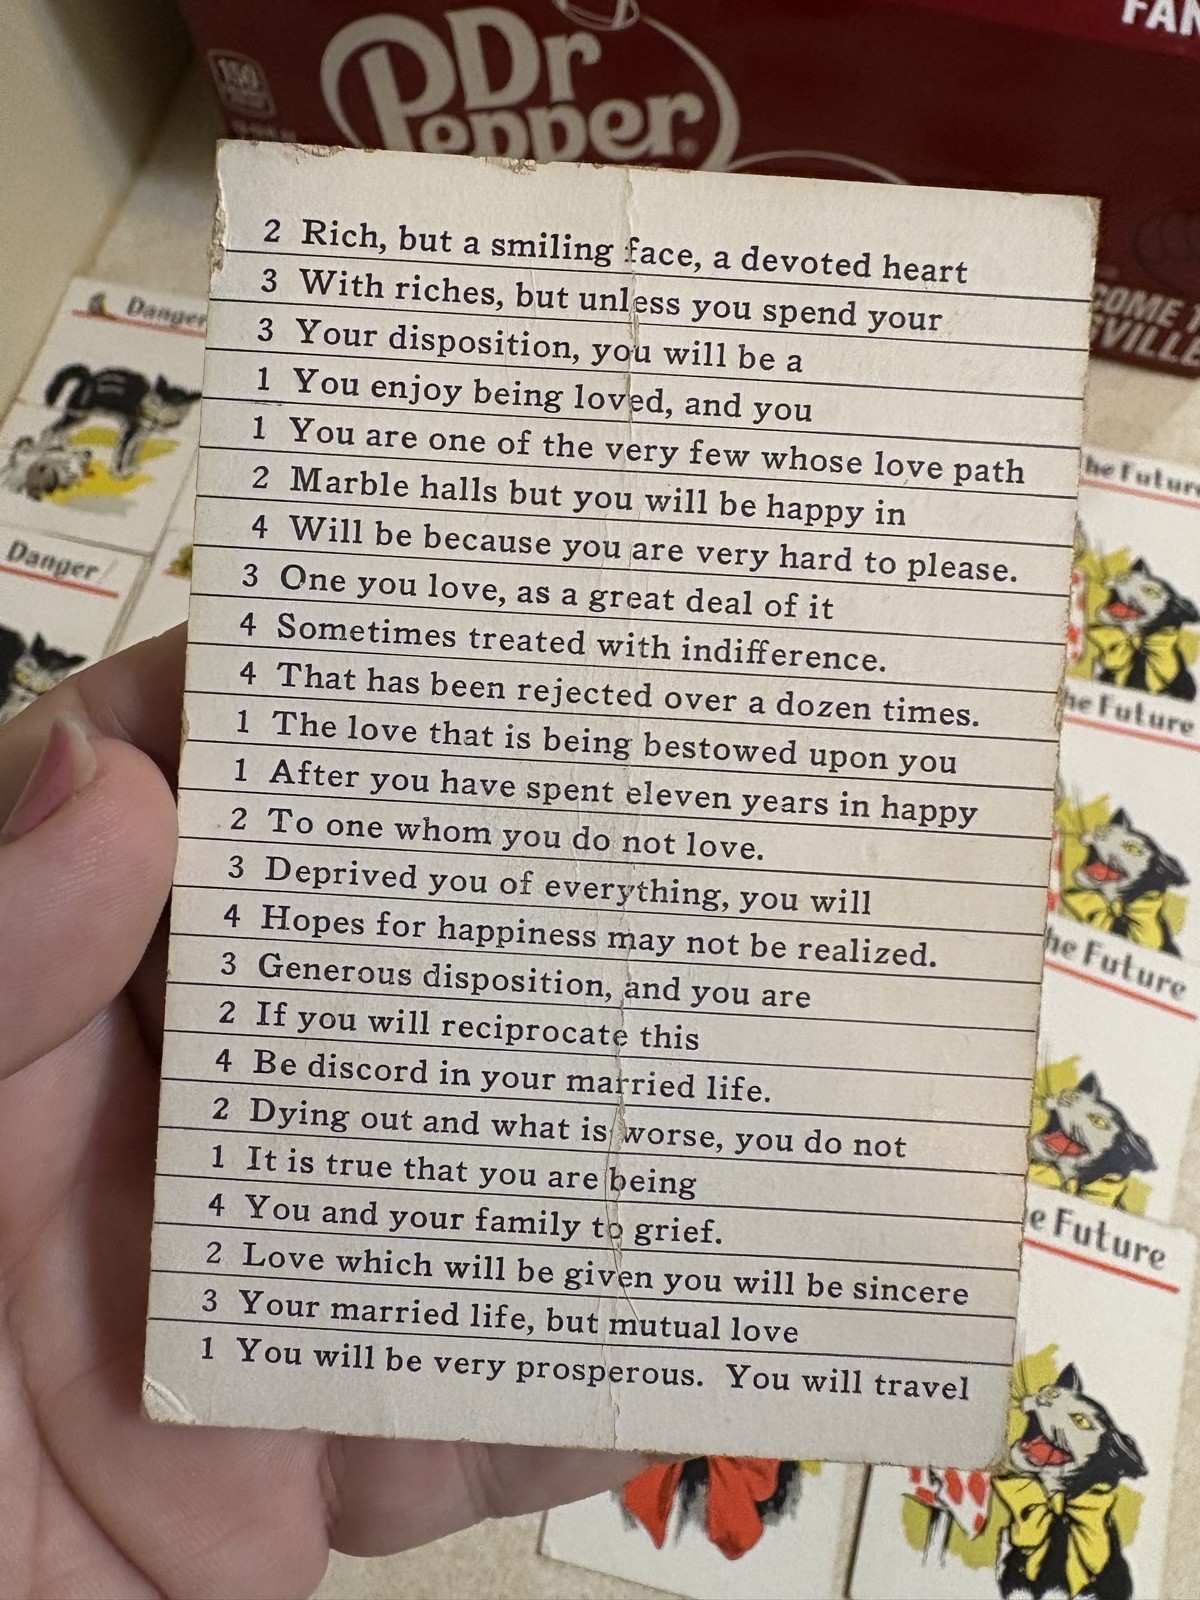 Dr
Pepper
FAN
150
COME
VILLE
2 Rich, but a smiling face, a devoted heart
3 With riches, but unless you spend your
3 Your disposition, you will be a
1 You enjoy being loved, and you
1 You are one of the very few whose love path
2 Marble halls but you will be happy in
4 Will be because you are very hard to please.
3 One you love, as a great deal of it
4 Sometimes treated with indifference.
4 That has been rejected over a dozen times.
1 The love that is being bestowed upon you
1 After you have spent eleven years in happy
2 To one whom you do not love.
3 Deprived you of everything, you will
4 Hopes for happiness may not be realized.
3 Generous disposition, and you are
2 If you will reciprocate this
4 Be discord in your married life.
2 Dying out and what is worse, you do not
1 It is true that you are being
4 You and your family to grief.
2 Love which will be given you will be sincere
3 Your married life, but mutual love
1 You will be very prosperous. You will travel
Danger
Danger!
he Future
he Future
he Future
e Future